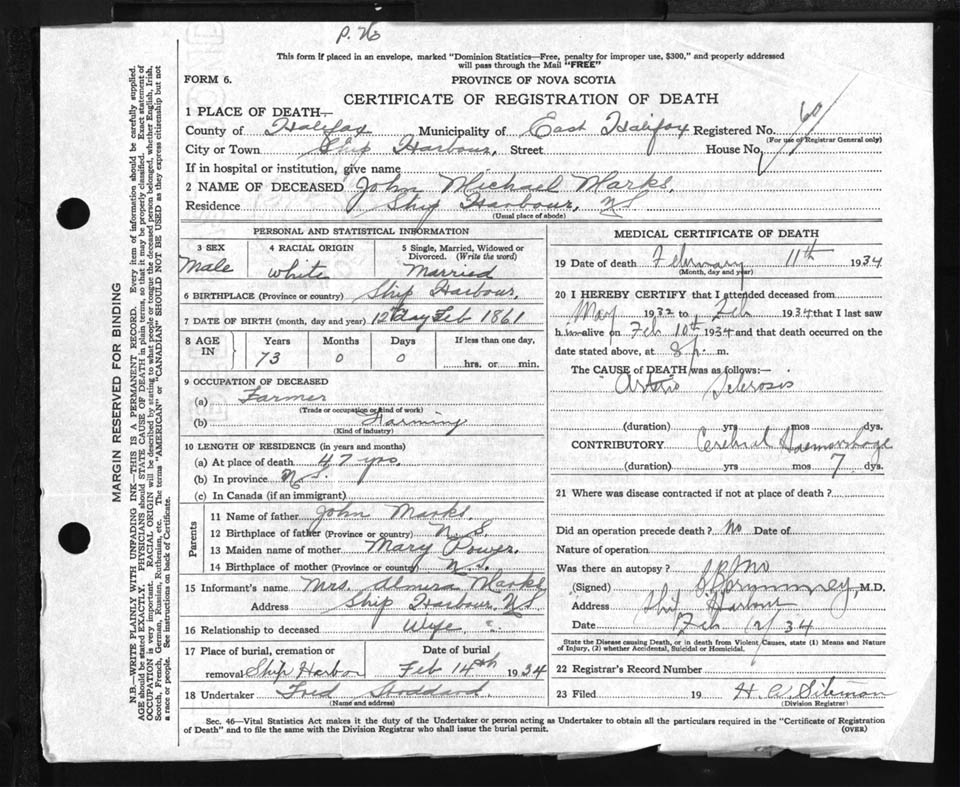 P. 76
This form if placed in an envelope, marked "Dominion Statistics—Free, penalty for improper use, $300," and properly addressed
will pass through the Mail "FREE"
FORM 6.
PROVINCE OF NOVA SCOTIA
CERTIFICATE OF REGISTRATION OF DEATH
1 PLACE OF DEATH—
County of Halifax Municipality of East Halifax Registered No.
(For use of Registrar General only)
City or Town Ship Harbour, Street House No.
If in hospital or institution, give name
2 NAME OF DECEASED John Michael Marks,
Residence Ship Harbour, NS
(Usual place of abode)
PERSONAL AND STATISTICAL INFORMATION
3 SEX 4 RACIAL ORIGIN 5 Single, Married, Widowed or
Divorced. (Write the word)
Male white Married
6 BIRTHPLACE (Province or country) Ship Harbour,
7 DATE OF BIRTH (month, day and year) 12th day Feb 1861
8 AGE IN Years Months Days If less than one day,
73 0 0 hrs. or min.
9 OCCUPATION OF DECEASED
(a) Farmer
(Trade or occupation or kind of work)
(b) Farming
(Kind of industry)
10 LENGTH OF RESIDENCE (in years and months)
(a) At place of death 47 yrs.
(b) In province N.S.
(c) In Canada (if an immigrant)
Parents
11 Name of father John Marks.
12 Birthplace of father (Province or country) N.S.
13 Maiden name of mother Mary Power.
14 Birthplace of mother (Province or country) N.S.
15 Informant's name Mrs. Almira Marks
Address Ship Harbour, NS
16 Relationship to deceased Wife
17 Place of burial, cremation or Date of burial
removal Ship Harbor Feb 14th 1934
18 Undertaker Fred Stoddard
(Name and address)
MEDICAL CERTIFICATE OF DEATH
19 Date of death February 11th 1934
(Month, day and year)
20 I HEREBY CERTIFY that I attended deceased from
May 1932 to Feb 1934 that I last saw
him alive on Feb 10th 1934 and that death occurred on
date stated above, at 8 p. m.
The CAUSE of DEATH was as follows:—
Arterio Sclerosis
(duration) yrs mos dys.
CONTRIBUTORY Cerebral Haemorrhage
(duration) yrs mos 7 dys.
21 Where was disease contracted if not at place of death?
Did an operation precede death? No Date of
Nature of operation
Was there an autopsy? No
(Signed) M.D.
Address Ship Harbour
Date Feb 34
State the Disease causing Death, or in death from Violent Causes, state (1) Means and Nature
of Injury, (2) whether Accidental, Suicidal or Homicidal.
22 Registrar's Record Number
23 Filed 19 H. A.
(Division Registrar)
Sec. 46—Vital Statistics Act makes it the duty of the Undertaker or person acting as Undertaker to obtain all the particulars required in the "Certificate of Registration
of Death" and to file the same with the Division Registrar who shall issue the burial permit.
(OVER)
MARGIN RESERVED FOR BINDING
N.B.—WRITE PLAINLY WITH UNFADING INK—THIS IS A PERMANENT RECORD. Every item of information should be carefully supplied.
AGE should be stated EXACTLY. PHYSICIANS should STATE CAUSE OF DEATH in plain terms, so that it may be properly classified. Exact statement of
OCCUPATION is very important. RACIAL ORIGIN will be described by stating to what people or tongue the deceased person belonged, whether English, Irish,
Scotch, French, German, Russian, Ruthenian, etc. The terms "AMERICAN" or "CANADIAN" SHOULD NOT BE USED as they express citizenship but not
a race or people. See instructions on back of Certificate.